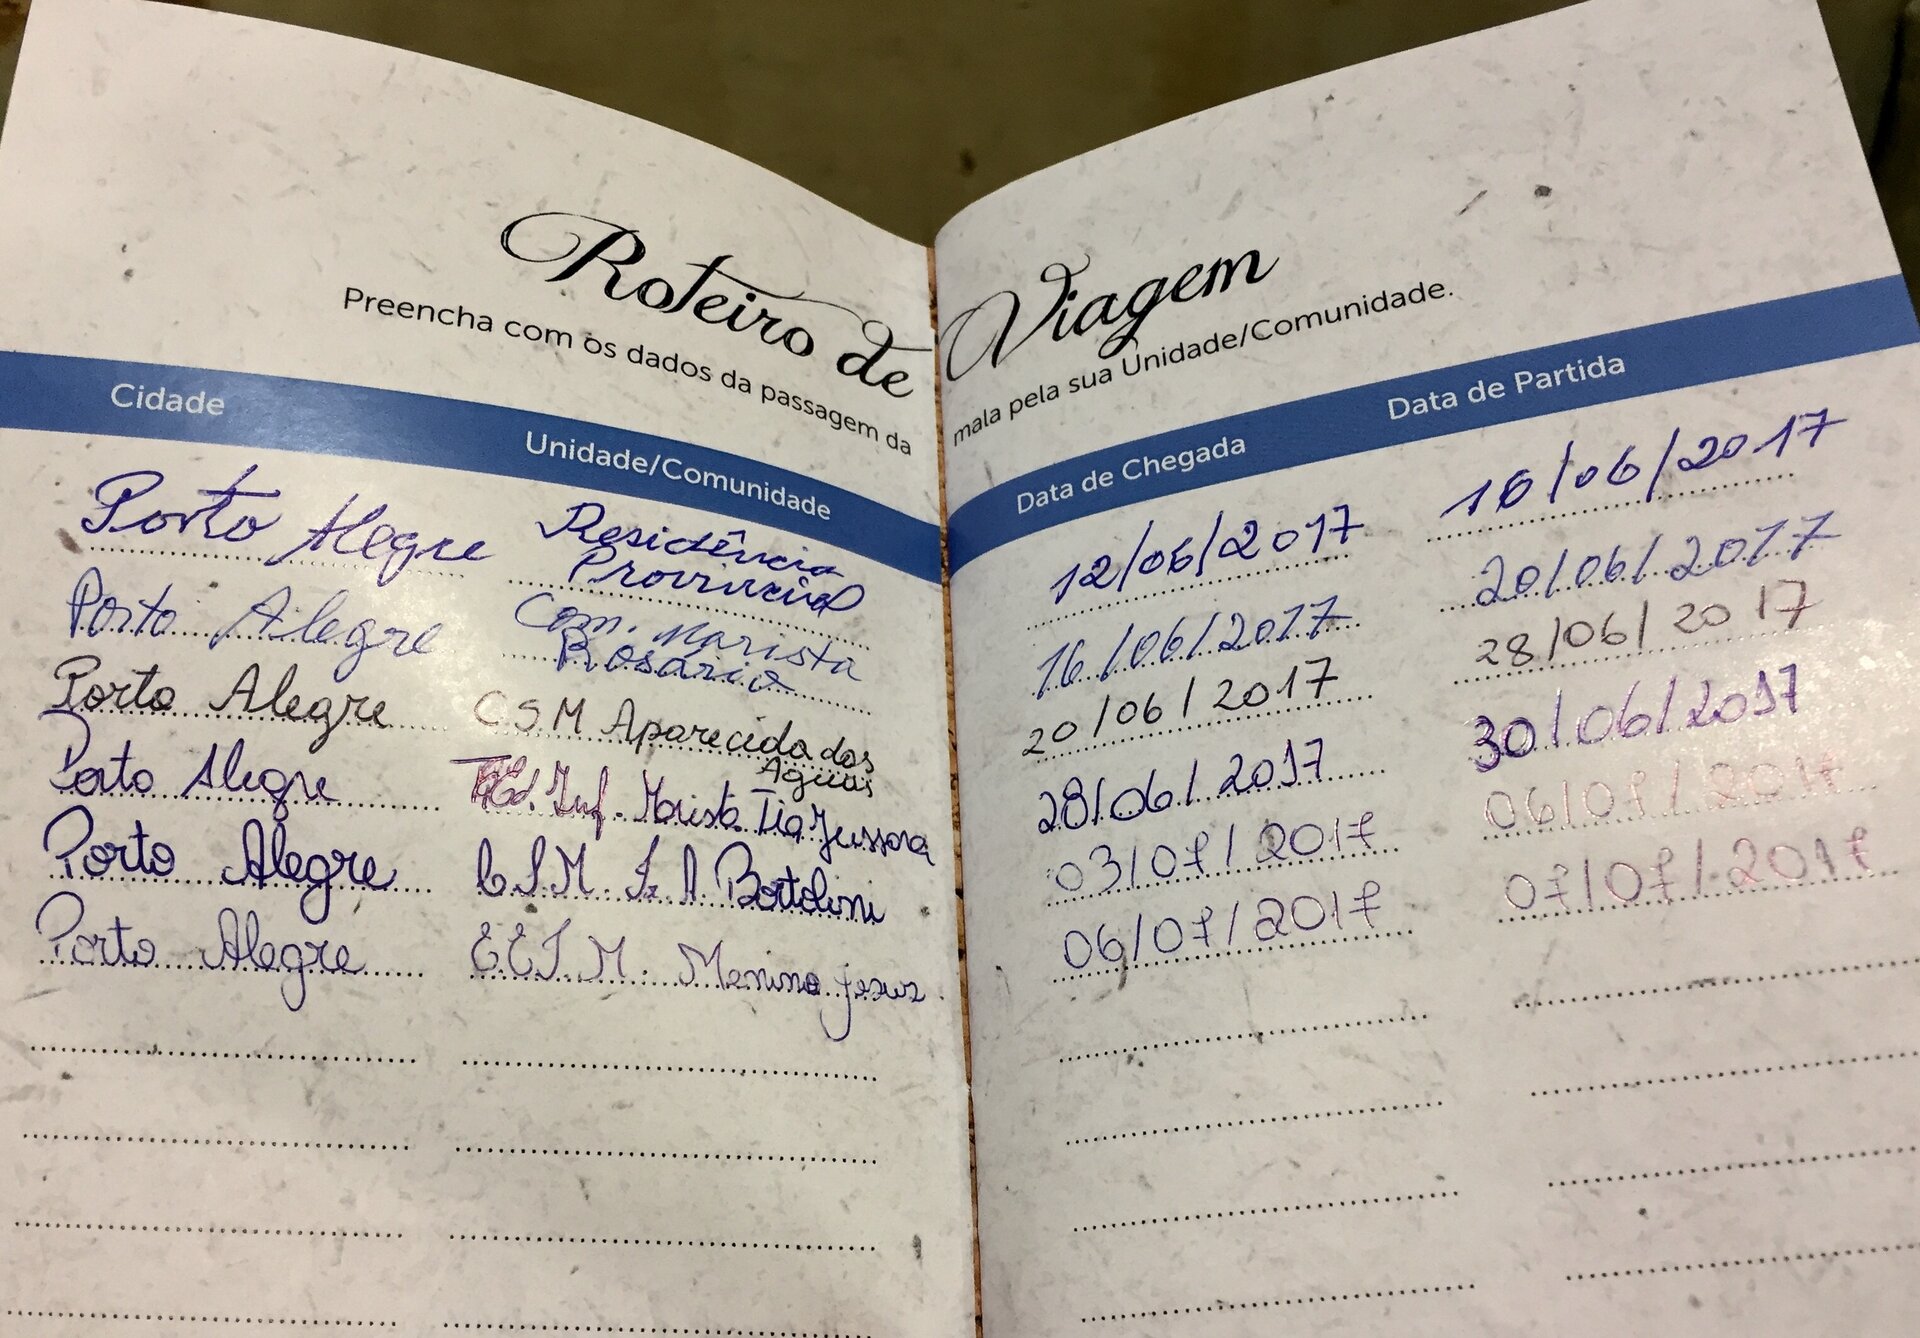 Roteiro de Viagem
Preencha com os dados da passagem da mala pela sua Unidade/Comunidade.
Cidade Unidade/Comunidade Data de Chegada Data de Partida
Porto Alegre Residência Provincial 12/06/2017 16/06/2017
Porto Alegre Com. Marista Rosário 16/06/2017 20/06/2017
Porto Alegre C S M Aparecida das Águas 20/06/2017 28/06/2017
Porto Alegre Ed. Inf. Marista Tia Jussara 28/06/2017 30/06/2017
Porto Alegre C.S.M. Ir. A. Bortolini 03/07/2017 06/07/2017
Porto Alegre E.E.I.M. Menino Jesus 06/07/2017 07/07/2017